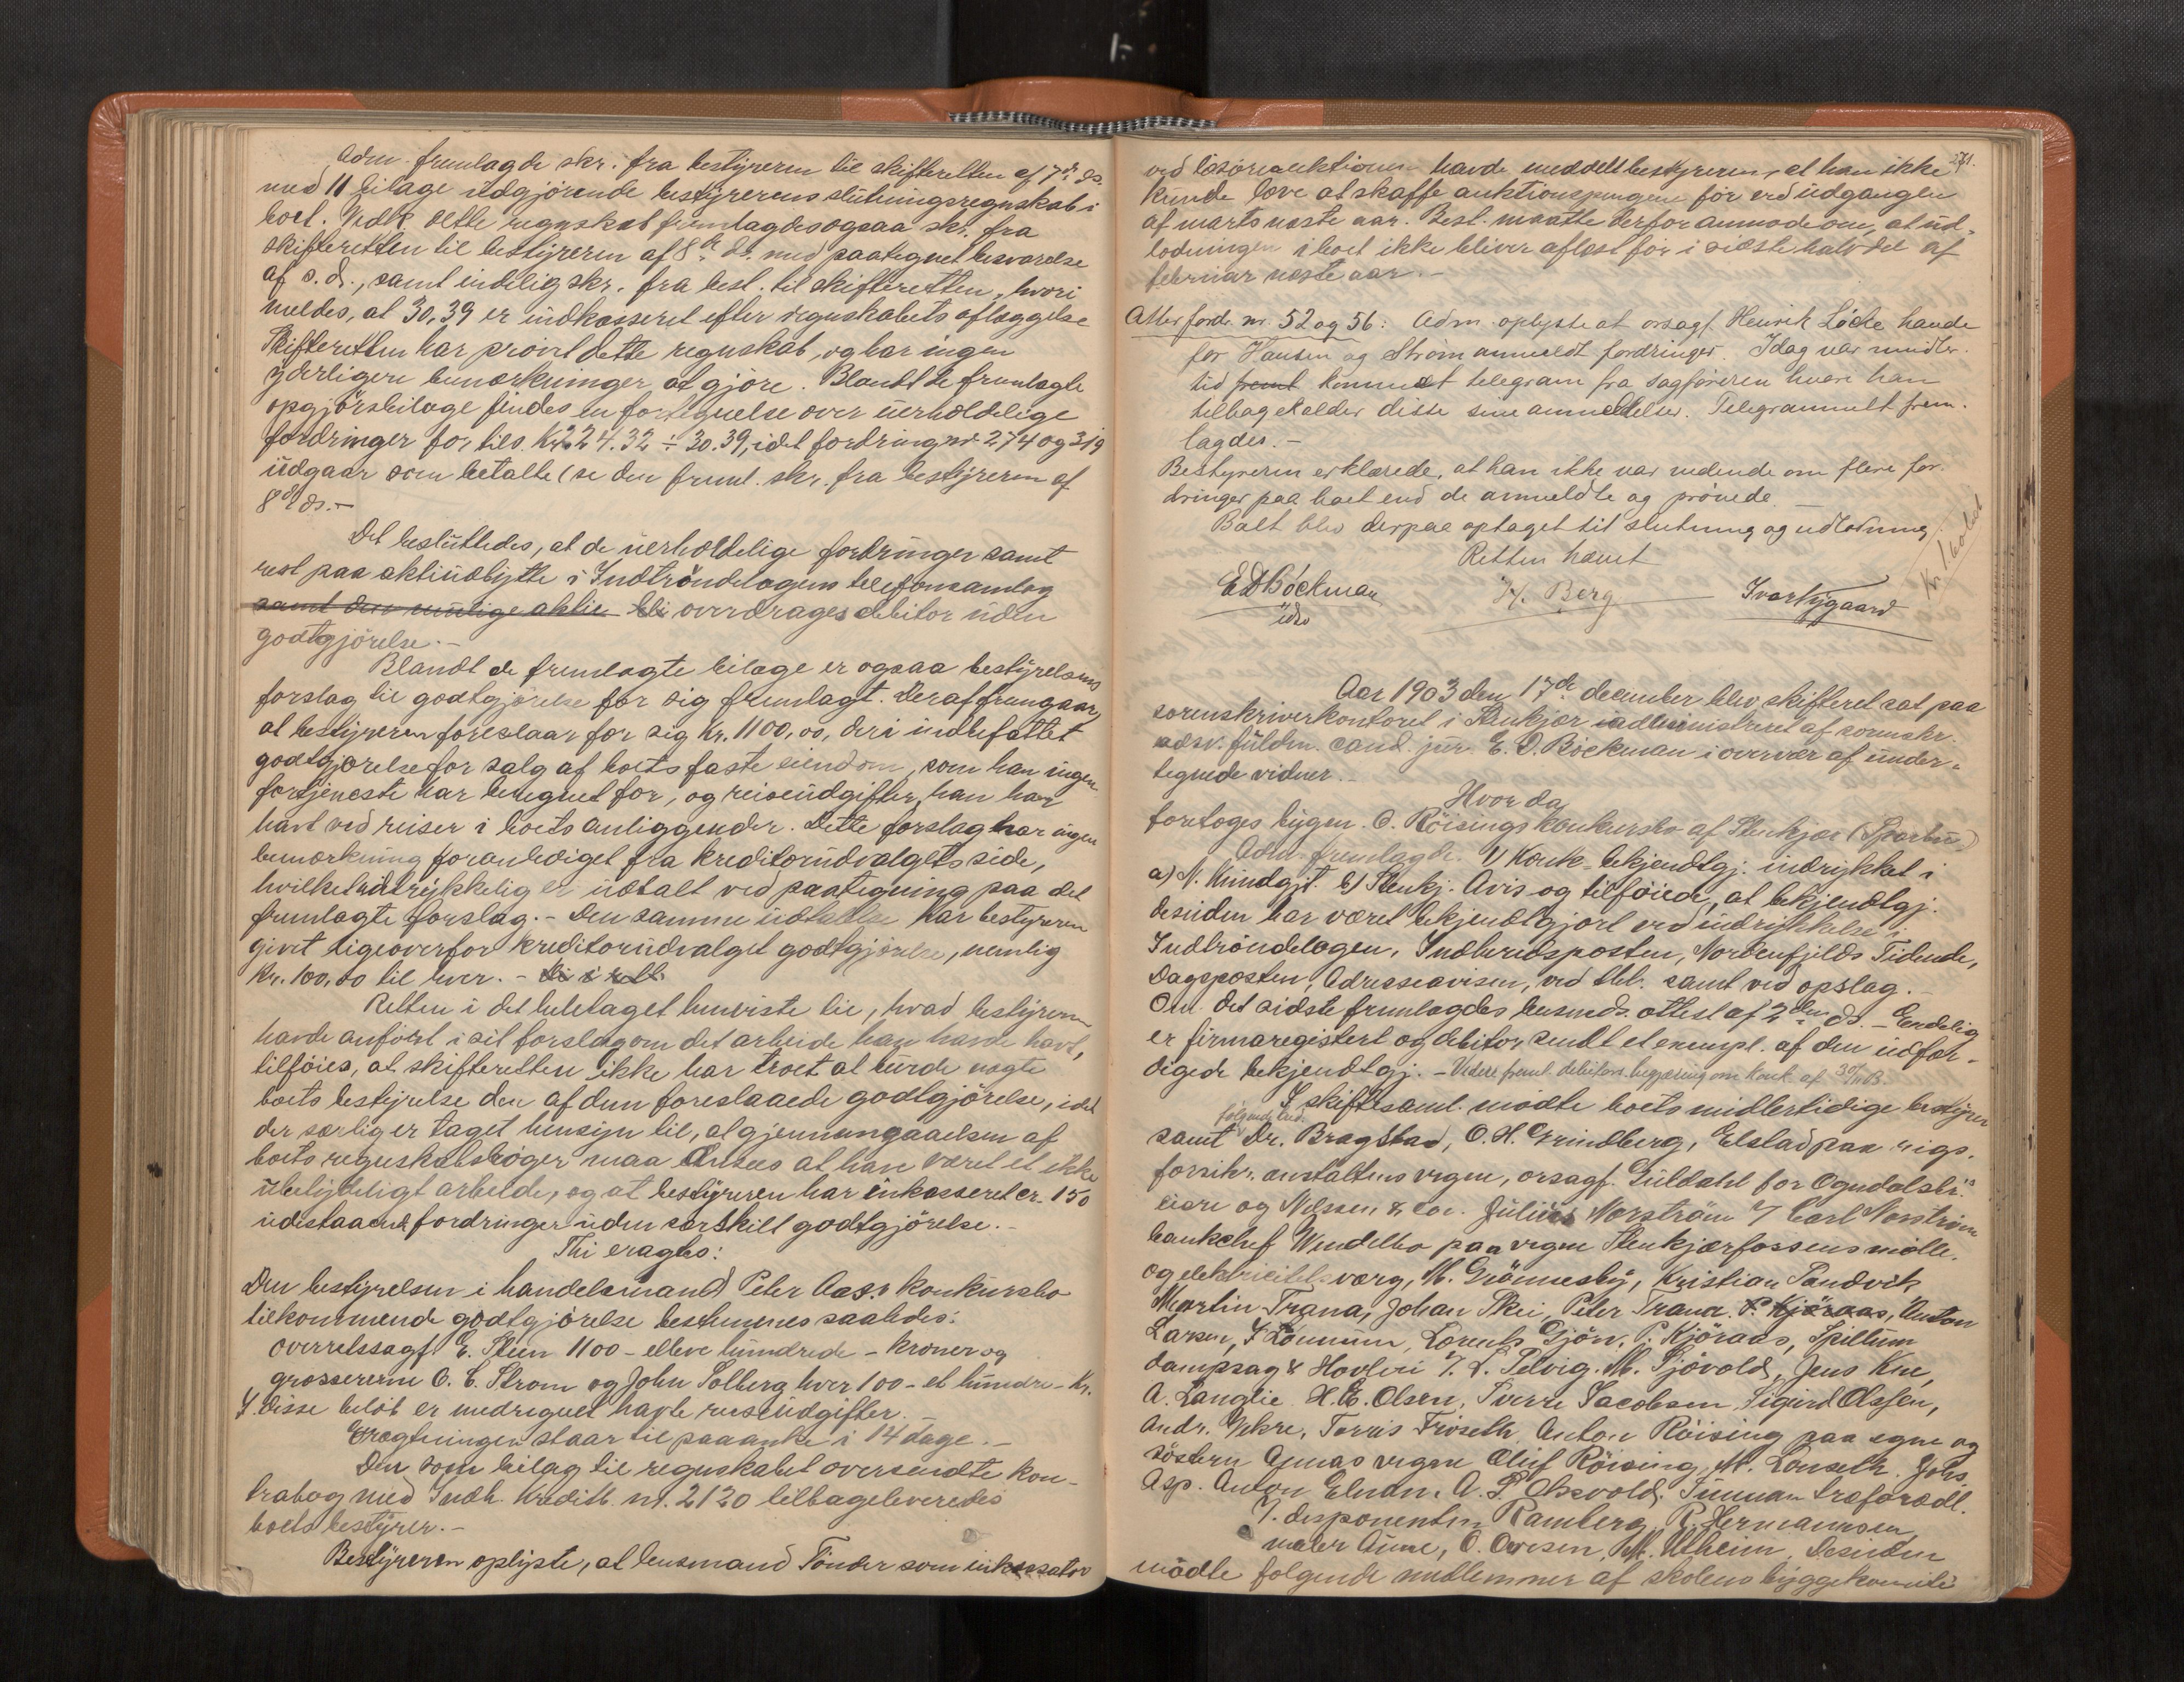 Adm. fremlagde skr. fra bestyreren til skifteretten af 7de ds.
med 11 bilage udgjörende bestyrerens slutningsregnskab i
boet. Vedk. dette regnskab fremlagdes ogsaa skr. fra
skifteretten til bestyreren af 8de ds. med paategnet besvarelse
af s.d., samt endelig skr. fra best. til skifteretten, hvori
meldes, at 30,39 er indkasseret efter regnskabets aflæggelse
Skifteretten har prövet dette regnskab, og har ingen
yderligere bemærkninger at gjöre. Blandt de fremlagte
opgjörsbilage findes en fortegnelse over uerholdelige
fordringer for tils. Kr 224.32 ÷ 30.39, idet fordring nr. 274 og 319
udgaar som betalte (se den freml. skr. fra bestyreren af
8de ds.-
Det besluttedes, at de uerholdelige fordringer samt
rest paa aktieudbytte i Indtröndelagens telefonsamlag
samt den mulige aktie bli overdrages debitor uden
godtgjörelse.-
Blandt de fremlagte bilage er ogsaa bestyrelsens
forslag til godtgjörelse for sig fremlagt. Deraf fremgaar,
at bestyreren foreslaar for sig Kr. 1100,00, deri indbefattet
godtgjörelse for salg af boets faste eiendom, som han ingen
fortjeneste har beregnet for, og reiseudgifter, han har
havt ved reiser i boets anliggender. Dette forslag har ingen
bemærkning foranlediget fra kreditorudvalgets side,
hvilket udtrykkelig er udtalt ved paategning paa det
fremlagte forslag.- Den samme udtalelse har bestyreren
givet ligeoverfor kreditorudvalget godtgjörelse, nemlig
Kr. 100,00 til hver.-
Retten i det heletaget henviste til, hvad bestyreren
havde anfört i sit forslag om det arbeide han havde havt,
tilföies, at skifteretten ikke har troet at burde nægte
boets bestyrelse den af dem foreslaaede godtgjörelse, idet
der særlig er taget hensyn til, at gjennemgaaelsen af
boets regnskabsböger maa ansees at have været et ikke
ubetydeligt arbeide, og at bestyreren har inkasseret cr. 150
udestaaende fordringer uden særskilt godtgjörelse.-
Thi eragtes:
Den bestyrelsen i handelsmand Peter Aas's konkursbo
tilkommende godtgjörelse bestemmes saaledes:
Overretssagf. E. Stein 1100 - elleve hundrede - kroner og
grossererne O. C. Strom og John Solberg hver 100 - et hundre - Kr.
I disse belöb er medregnet havte reiseudgifter.
Eragtningen staar til paaanke i 14 dage.-
Den som bilag til regnskabet oversendte kon-
trabog med Indh. Kreditb. nr. 2120 tilbageleveredes
boets bestyrer.-
Bestyreren oplyste, at lensmand Tönder som inkassator
271.
ved lösöreauktionen havde meddelt bestyreren, at han ikke
kunde love at skaffe auktionspengene för ved udgangen
af marts næste aar. Best. maatte derfor anmode om, at ud-
lodningen i boet ikke bliver aflæst för i sidste halvdel af
februar næste aar.-
Atter ford. nr. 52 og 56: Adm. oplyste at orsagf. Henrik Löcke havde
for Hansen og Ström anmeldt fordringer. Idag var imidler-
tid freml kommet telegram fra sagföreren hvori han
tilbagekalder disse sine anmeldelser. Telegrammet frem-
lagdes.-
Bestyreren erklærede, at han ikke var vidende om flere for-
dringer paa boet end de anmeldte og prövede
Boet blev derpaa optaget til slutning og udlodning
Retten hævet
E D Böckman H. Berg Ivar Nygaard
Aar 1903 den 17de december blev skifteret sat paa
sorenskriverkontoret i Stenkjær administreret af sorenskr.
edsv. fuldm. cand. jur. E. D. Böckman i overvær af under-
tegnede vidner.-
Hvor da
foretoges bygm. O. Röisings konkursbo af Stenkjær (Sparbu)
Adm. fremlagde. 1/ Konk. bekjendtgj. indrykket i
a) N. Kundgjt. b) Stenkj. Avis og tilföiede, at bekjendtgj.
desuden har været bekjendtgjort ved indrykkelse i
Indtröndelagen, Indherredsposten, Nordenfjelds Tidende,
Dagsposten, Adresseavisen, ved tlel. samt ved opslag.-
Om det sidste fremlagdes lensmds. attest af 2den ds. - Endelig
er firmaregistert og debitor sendt et exempl. af den udfær-
digede bekjendtgj. - Videre freml. debitors begjæring om konk. af 30/11 03
I skiftesaml. mödte boets midlertidige bestyrer
fölgende kred.
samt Dr. Bragstad, O. H. Grindberg, Elstad paa rigs-
forsikr. anstaltens vegne, orsagf. Guldahl for Ogndalsbr.
eiere og Nelssen & Co. Julius Norström f/ Carl Norström
bankchef Wendelbo paa vegne Stenkjærfossens mölle-
og elektricitetsværg, M. Grönnesby, Kristian Sandvik
Martin Trana, Johan Skei, Peter Trana. P. Kjöraas, Anton
Larsen, I Lömmen, Lorents Gjörv, P. Kjöraas, Spillum
dampsag & Hovleri f. L. Selvig. M. Sjövold, Jens Kne,
A. Langlie H. E. Olsen, Sverre Jacobsen Sigurd Olssen,
Andr. Vekre, Torris Fröseth Anton Röising paa egne og
söstern Annas vegne Oluf Röising, M. Lonseth. Johs.
Asp. Anton Elnan. A. P. Olsvold, Tunman træforædl.
f. disponenten Ramberg, R. Hermannsen,
maler Aune, O. Ovesen, M. Uthenn, Desuden
mödte folgende medlemmer af skolens byggekomite